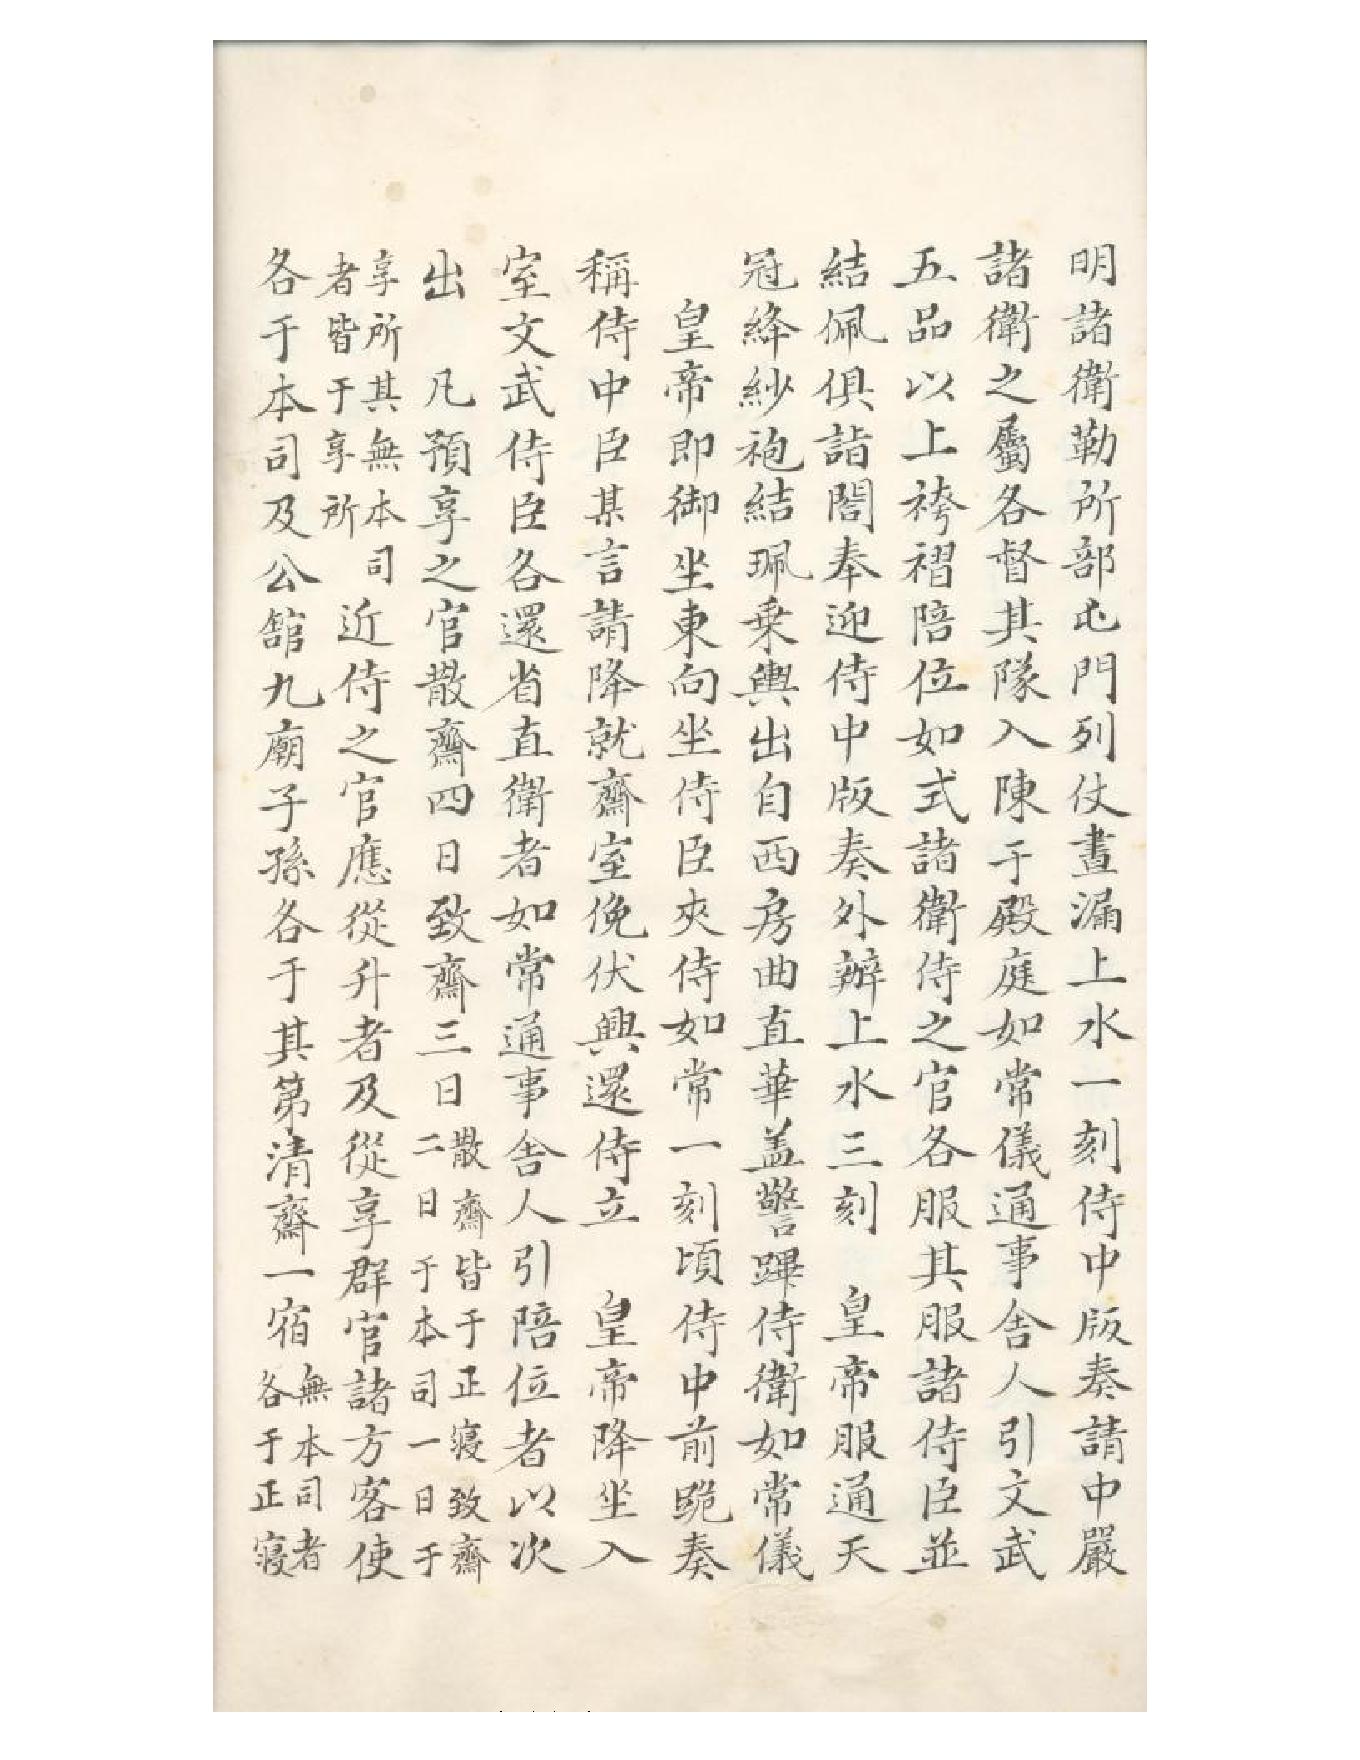 明諸衛勒所部屯門列仗晝漏上水一刻侍中版奏請中嚴
諸衛之屬各督其隊入陳于殿庭如常儀通事舍人引文武
五品以上袴褶陪位如式諸衛侍之官各服其服諸侍臣並
結佩俱詣閤奉迎侍中版奏外辦上水三刻　皇帝服通天
冠絳紗袍結珮乗輿出自西房曲直華盖警蹕侍衛如常儀
皇帝即御坐東向坐侍臣夾侍如常一刻頃侍中前跪奏
稱侍中臣某言請降就齋室俛伏興還侍立　皇帝降坐入
室文武侍臣各還省直衛者如常通事舍人引陪位者以次
出　凡預享之官散齋四日致齋三日
散齋皆于正寝致齋
二日于本司一日于
享所其無本司
者皆于享所
近侍之官應從升者及從享群官諸方客使
各于本司及公館九廟子孫各于其第清齋一宿
無本司者
各于正寝